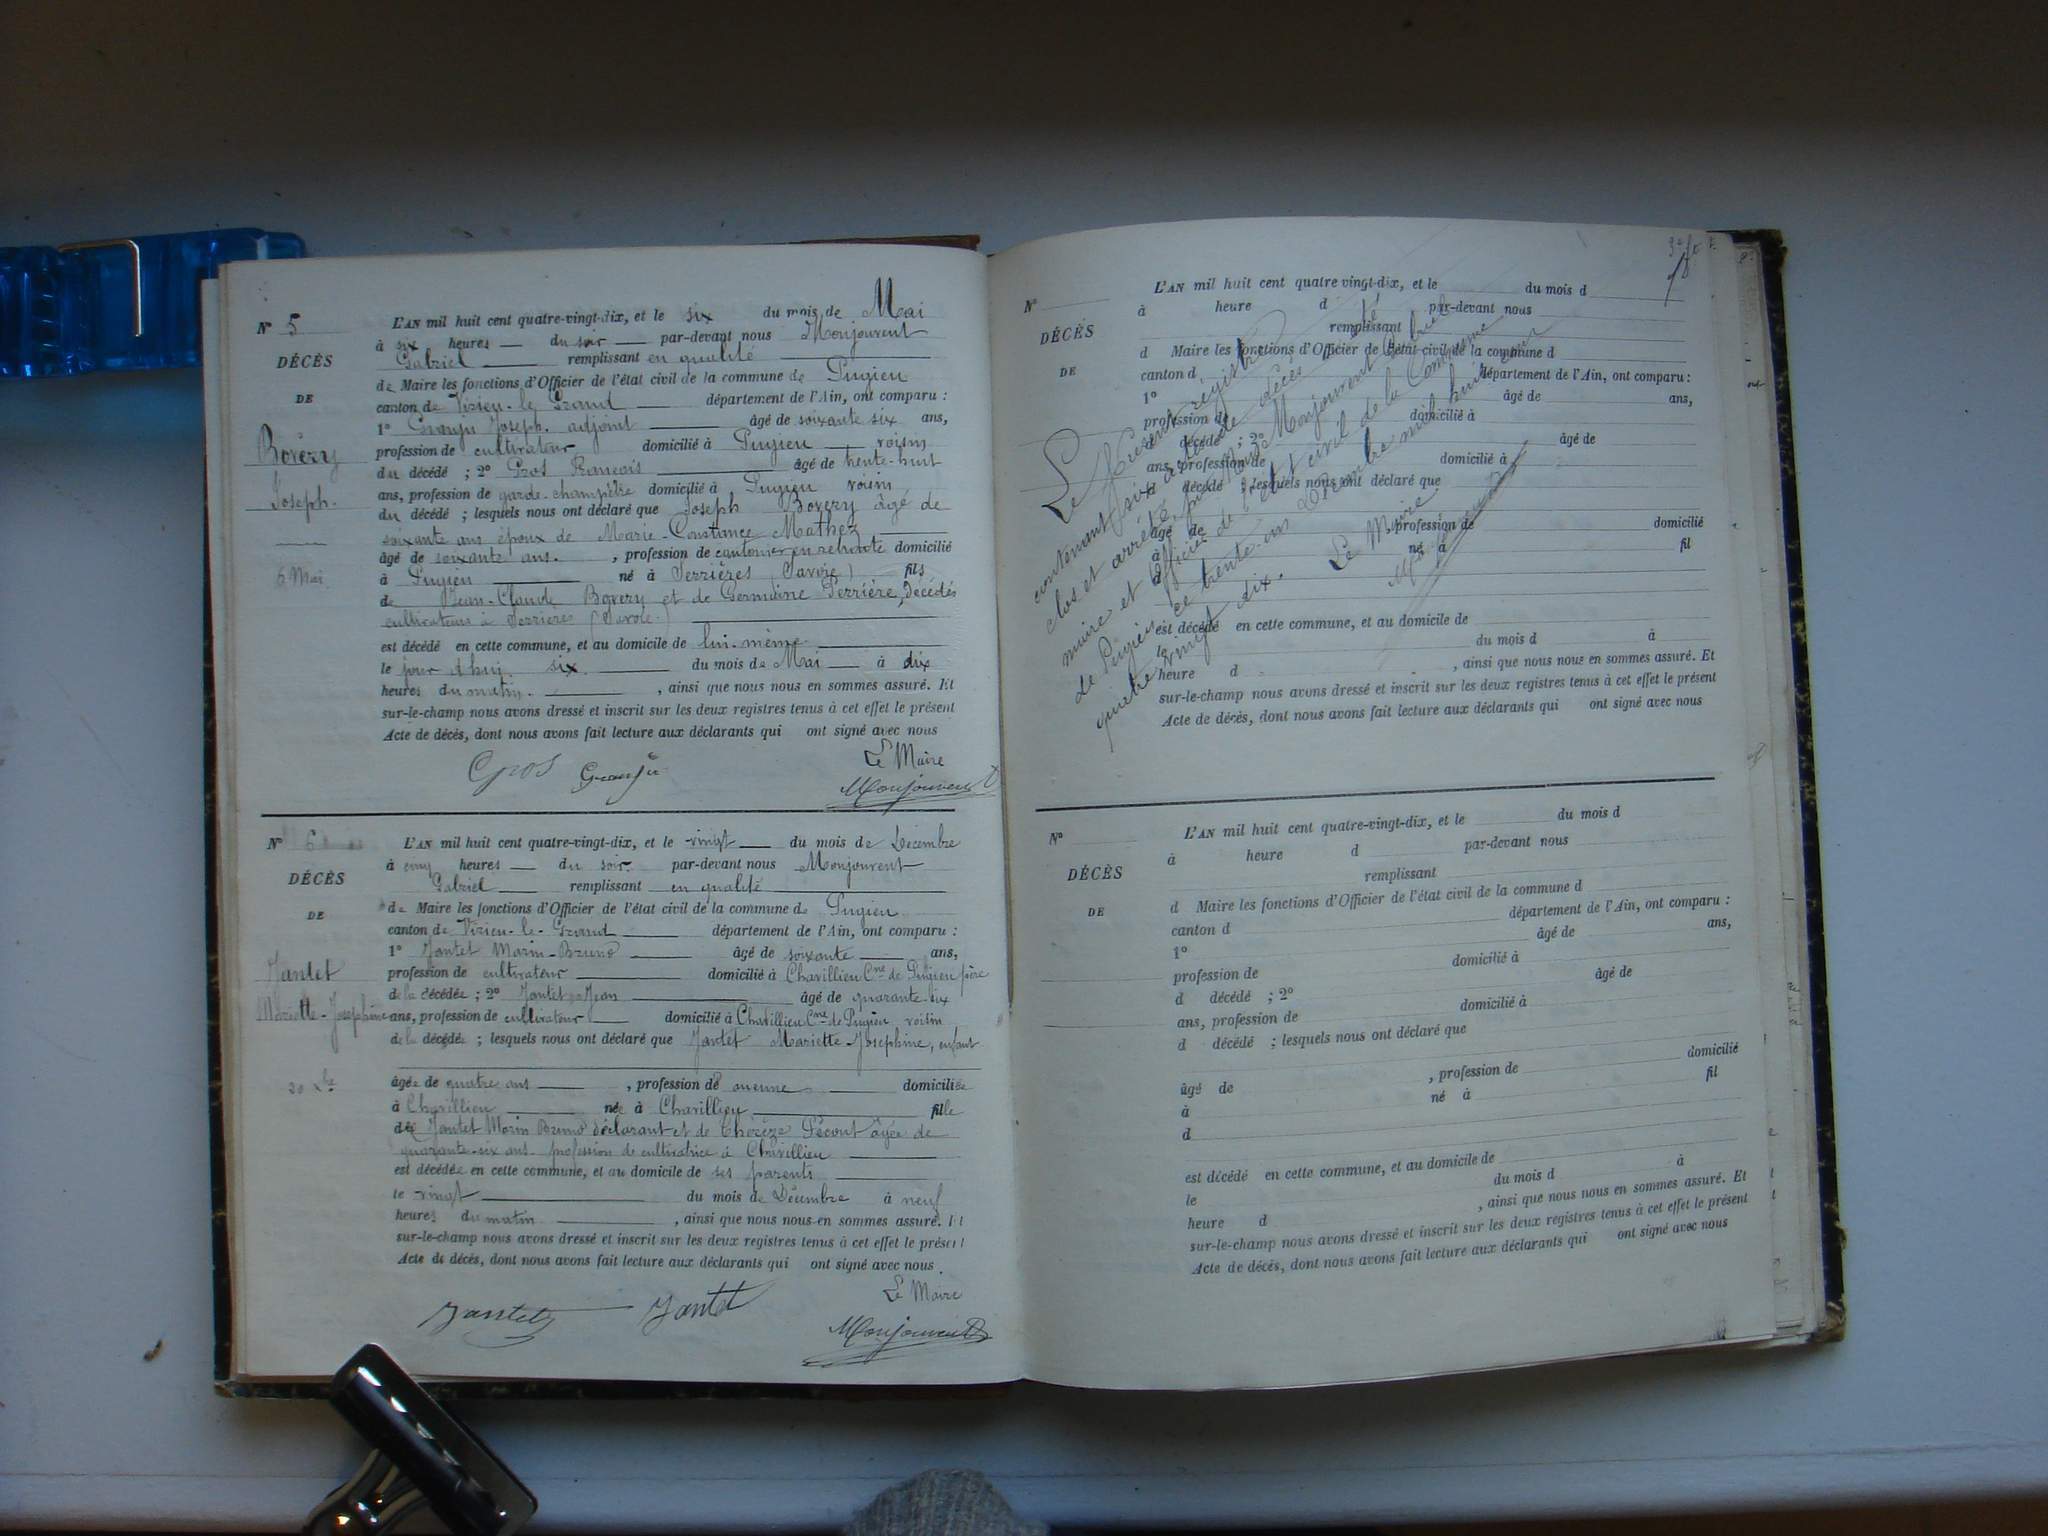 N° 5
DÉCÈS
DE
Bovery
Joseph.
6 Mai
L'AN mil huit cent quatre-vingt-dix, et le six du mois de Mai
à six heures du soir par-devant nous Monjouvent
Gabriel remplissant en qualité
de Maire les fonctions d'Officier de l'état civil de la commune de Pugieu
canton de Virieu-le-Grand département de l'Ain, ont comparu :
1° Granju Joseph. adjoint âgé de soixante six ans,
profession de cultivateur domicilié à Pugieu voisin
du décédé ; 2° Gros François âgé de trente-huit
ans, profession de garde-champêtre domicilié à Pugieu voisin
du décédé ; lesquels nous ont déclaré que Joseph Bovery âgé de
soixante ans époux de Marie-Constance Mathez
âgé de soixante ans. , profession de cantonnier en retraite domicilié
à Pugieu né à Serrières (Savoie) fils
de Jean-Claude Bovery et de Germaine Perrière, décédés
cultivateurs à Serrières (Savoie)
est décédé en cette commune, et au domicile de lui-même
le jour d'hui six du mois de Mai à dix
heures du matin. , ainsi que nous nous en sommes assuré. Et
sur-le-champ nous avons dressé et inscrit sur les deux registres tenus à cet effet le présent
Acte de décès, dont nous avons fait lecture aux déclarants qui ont signé avec nous
Gros Granju
Le Maire
Monjouvent
N° 6
DÉCÈS
DE
Jantet
Mariette-Josephine
20 Xbre
L'AN mil huit cent quatre-vingt-dix, et le vingt du mois de Décembre
à cinq heures du soir par-devant nous Monjouvent
Gabriel remplissant en qualité
de Maire les fonctions d'Officier de l'état civil de la commune de Pugieu
canton de Virieu-le-Grand département de l'Ain, ont comparu :
1° Jantet Marin-Bruno âgé de soixante ans,
profession de cultivateur domicilié à Chavillieu Cne de Pugieu père
de la décédée ; 2° Jantet Jean âgé de quarante-six
ans, profession de cultivateur domicilié à Chavillieu Cne de Pugieu voisin
de la décédée ; lesquels nous ont déclaré que Jantet Mariette-Josephine, enfant
âgée de quatre ans , profession de aucune domiciliée
à Chavillieu née à Chavillieu fille
de Jantet Marin Bruno déclarant et de Thérèze Pécout âgée de
quarante-six ans profession de cultivatrice à Chavillieu
est décédée en cette commune, et au domicile de ses parents
le vingt du mois de Décembre à neuf
heures du matin , ainsi que nous nous en sommes assuré. Et
sur-le-champ nous avons dressé et inscrit sur les deux registres tenus à cet effet le présent
Acte de décès, dont nous avons fait lecture aux déclarants qui ont signé avec nous.
Jantet Jantet
Le Maire
Monjouvent
N°
DÉCÈS
DE
L'AN mil huit cent quatre-vingt-dix, et le du mois d
à heure d par-devant nous
remplissant
d Maire les fonctions d'Officier de l'état civil de la commune d
canton d département de l'Ain, ont comparu :
1° âgé de ans,
profession de domicilié à
d décédé ; 2° âgé de
ans, profession de domicilié à
d décédé ; lesquels nous ont déclaré que
âgé de , profession de domicilié
à né à fil
d
est décédé en cette commune, et au domicile de
le du mois d à
heure d , ainsi que nous nous en sommes assuré. Et
sur-le-champ nous avons dressé et inscrit sur les deux registres tenus à cet effet le présent
Acte de décès, dont nous avons fait lecture aux déclarants qui ont signé avec nous
Le présent régistre
contenant six actes de décès a été
clos et arrêté par Nous Monjouvent Gabriel
maire et officier de l'état civil de la Commune
de Pugieu ce trente-un Décembre mil huit cent
quatre vingt dix.
Le Maire
Monjouvent
N°
DÉCÈS
DE
L'AN mil huit cent quatre-vingt-dix, et le du mois d
à heure d par-devant nous
remplissant
d Maire les fonctions d'Officier de l'état civil de la commune d
canton d département de l'Ain, ont comparu :
1° âgé de ans,
profession de domicilié à
d décédé ; 2° âgé de
ans, profession de domicilié à
d décédé ; lesquels nous ont déclaré que
âgé de , profession de domicilié
à né à fil
d
est décédé en cette commune, et au domicile de
le du mois d à
heure d , ainsi que nous nous en sommes assuré. Et
sur-le-champ nous avons dressé et inscrit sur les deux registres tenus à cet effet le présent
Acte de décès, dont nous avons fait lecture aux déclarants qui ont signé avec nous